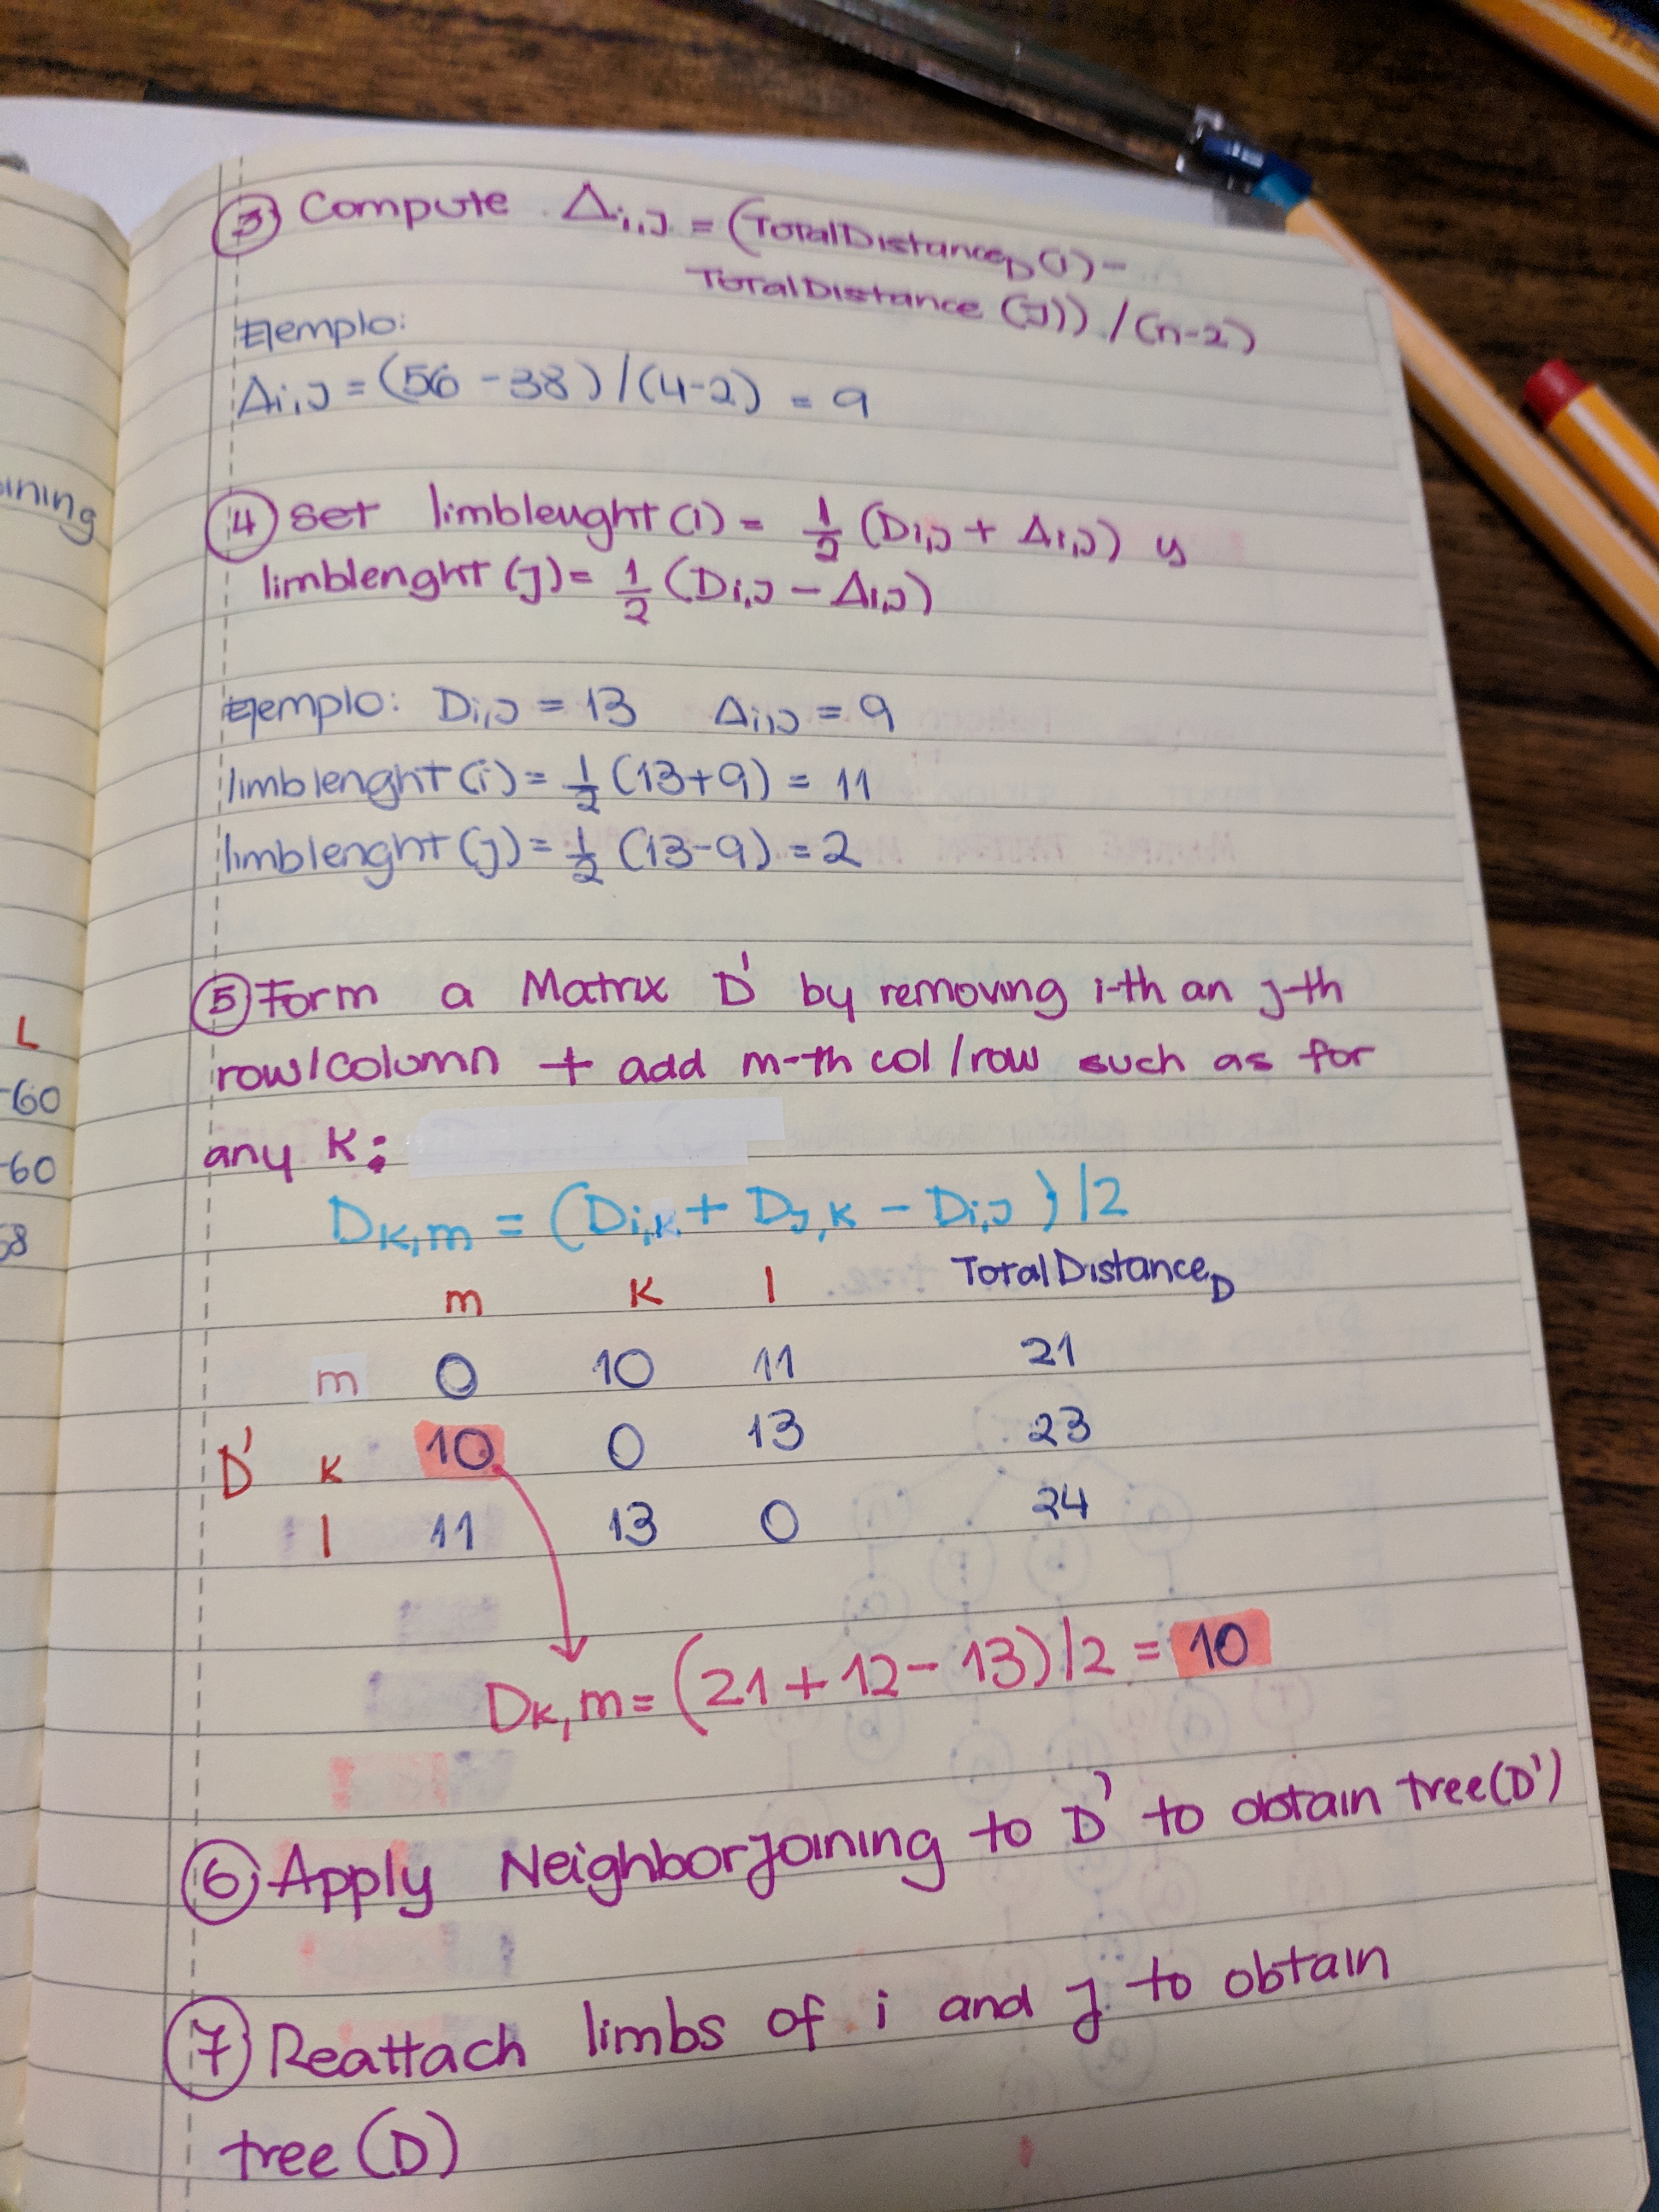 ining
L
-60
-60
58
③ Compute Δi,j = (TotalDistanceD(i) –
TotalDistance (j)) / (n-2)
Ejemplo:
Δi,j = (56 - 38) / (4-2) = 9
④ Set limblenght (i) = 1/2 (Di,j + Δi,j) y
limblenght (j) = 1/2 (Di,j - Δi,j)
Ejemplo: Di,j = 13 Δi,j = 9
limblenght (i) = 1/2 (13+9) = 11
limblenght (j) = 1/2 (13-9) = 2
⑤ Form a Matrix D' by removing i-th an j-th
row/column + add m-th col/row such as for
any K:
DK,m = (Di,K + Dj,K - Di,j)/2
m K l TotalDistanceD
m 0 10 11 21
D' K 10 0 13 23
l 11 13 0 24
DK,m = (21+12-13)/2 = 10
⑥ Apply NeighborJoining to D' to obtain tree(D')
⑦ Reattach limbs of i and j to obtain
tree (D)